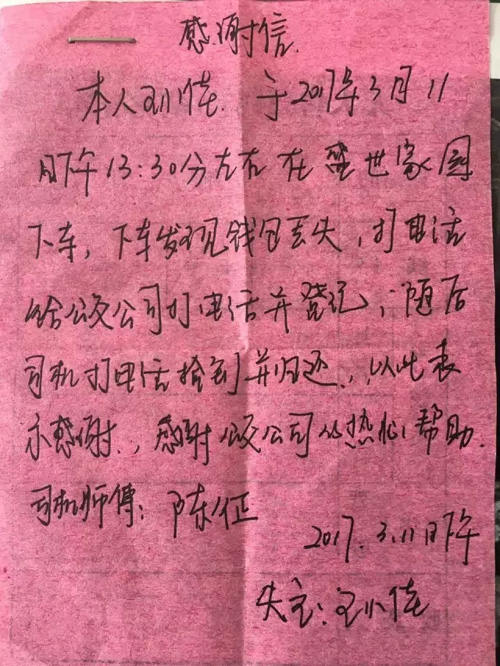 感谢信.
本人王小佳. 于2017年3月11
日下午13:30分左右在盛世家园
下车，下车发现钱包丢失，打电话
给公交公司打电话并登记，随后
司机打电话捡到并归还.，以此表
示感谢.，感谢公交公司的热心帮助.
司机师傅：陈征
2017.3.11日下午
失主：王小佳